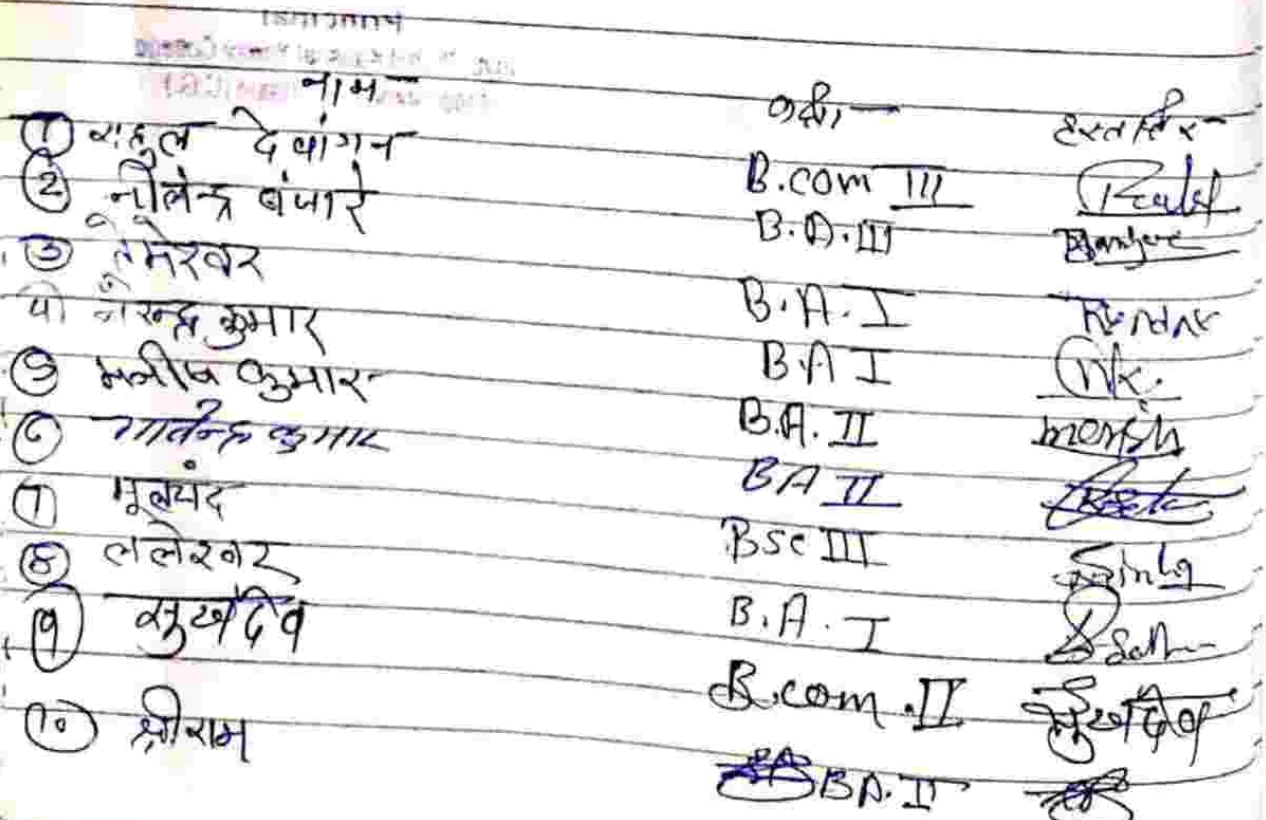 नाम कक्षा हस्ताक्षर
① राहुल देवांगन B.com III Rahul
② नीलेन्द्र बंजारे B.A.III Banjare
③ तेमेश्वर B.A. I
④ नरेन्द्र कुमार B.A I Nk.
⑤ मनीष कुमार B.A. II manish
⑥ कुमार BA II
⑦ मूलचंद Bsc III
⑧ ललेश्वर B.A. I
⑨ सुखदेव B.com .II सुखदेव
⑩ श्रीराम B.A. II